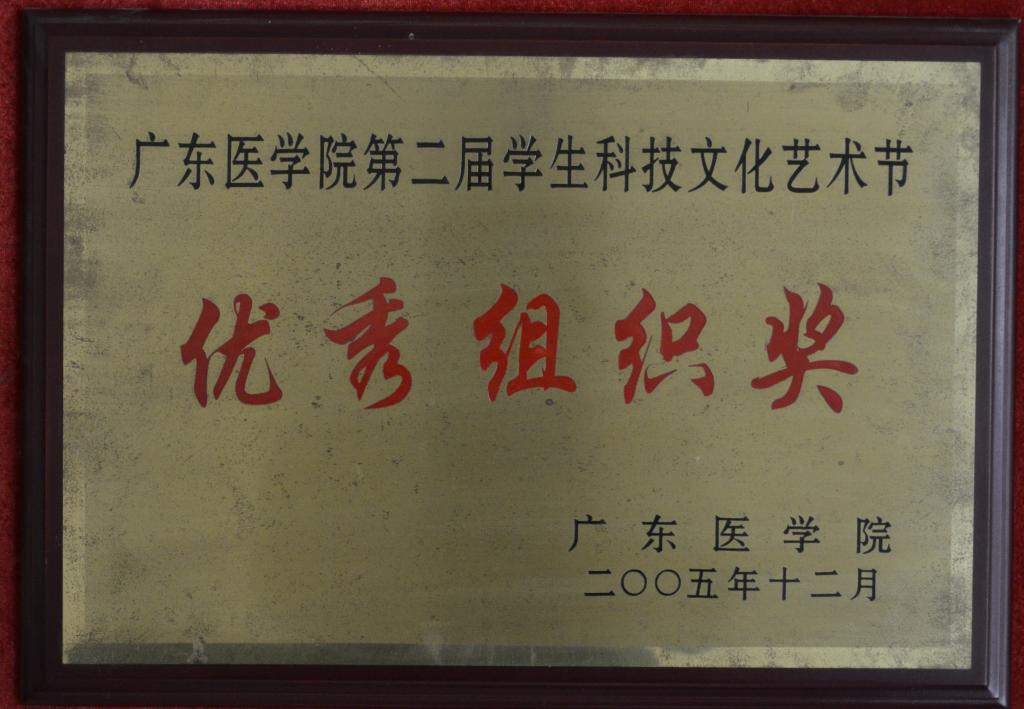 广东医学院第二届学生科技文化艺术节
优秀组织奖
广东医学院
二〇〇五年十二月